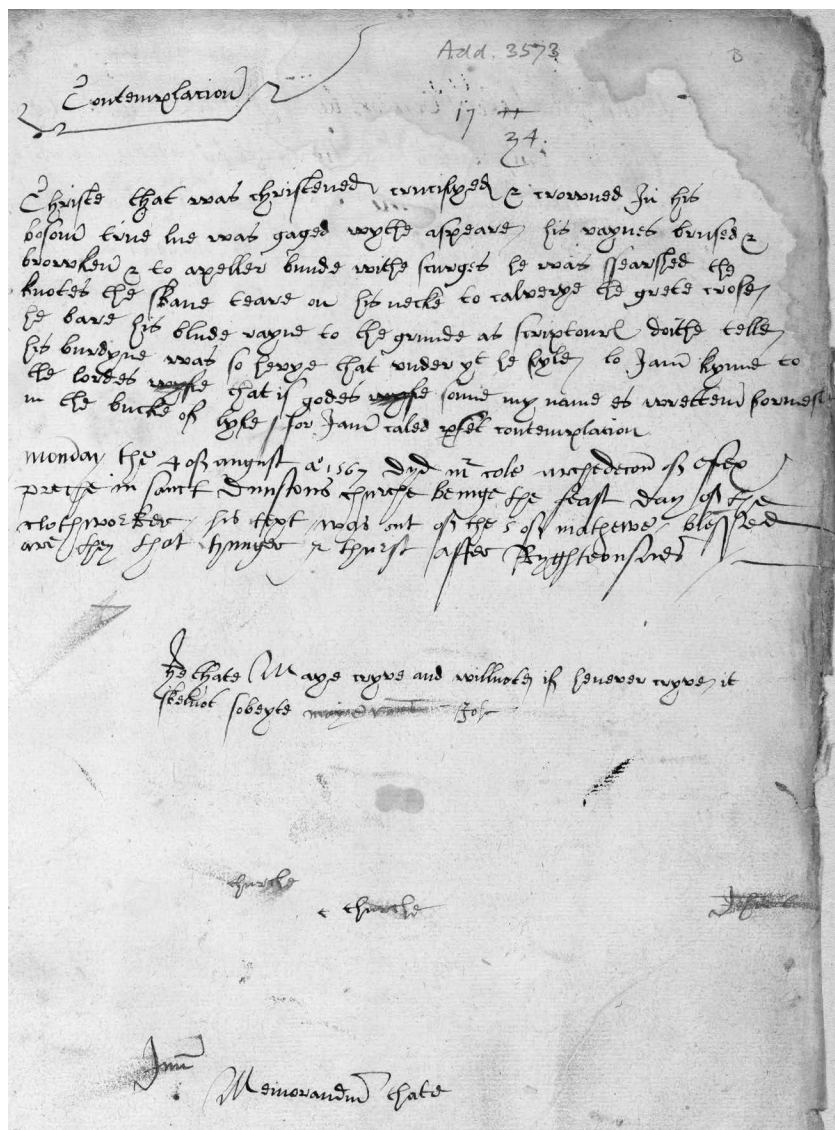 Add. 3573 B
Contemplacion
17
34
Christe that was christened crucifyed & crowned In his
bosom true lue was gaged wythe aspeare his vaynes brused &
browken & to apeller bunde withe scurges he was the
knotes the skane teare on his necke to calverye the grete crosse
he bare his blude rayne to the grunde as scriptour doithe telle
his burdyne was so hevye that under yt he fyle lo Jam kyme to
the lordes that is godes sonne my name es wrettem
in the bucke of lyfe for Jam caled contemplacion
monday the 4 of august ao 1567 dyd mr cole archedecon of essex
preche in sanct Dunstons churche beinge the feast day of the
clothworker his text was out of the 5 of mathewe blessed
are they that hunger & thurst after Ryghteousnes
He thate Maye cryve and willnote if henever cryve it
skelnot sobeyte
churche
churche
Jmn
Memorandum thate